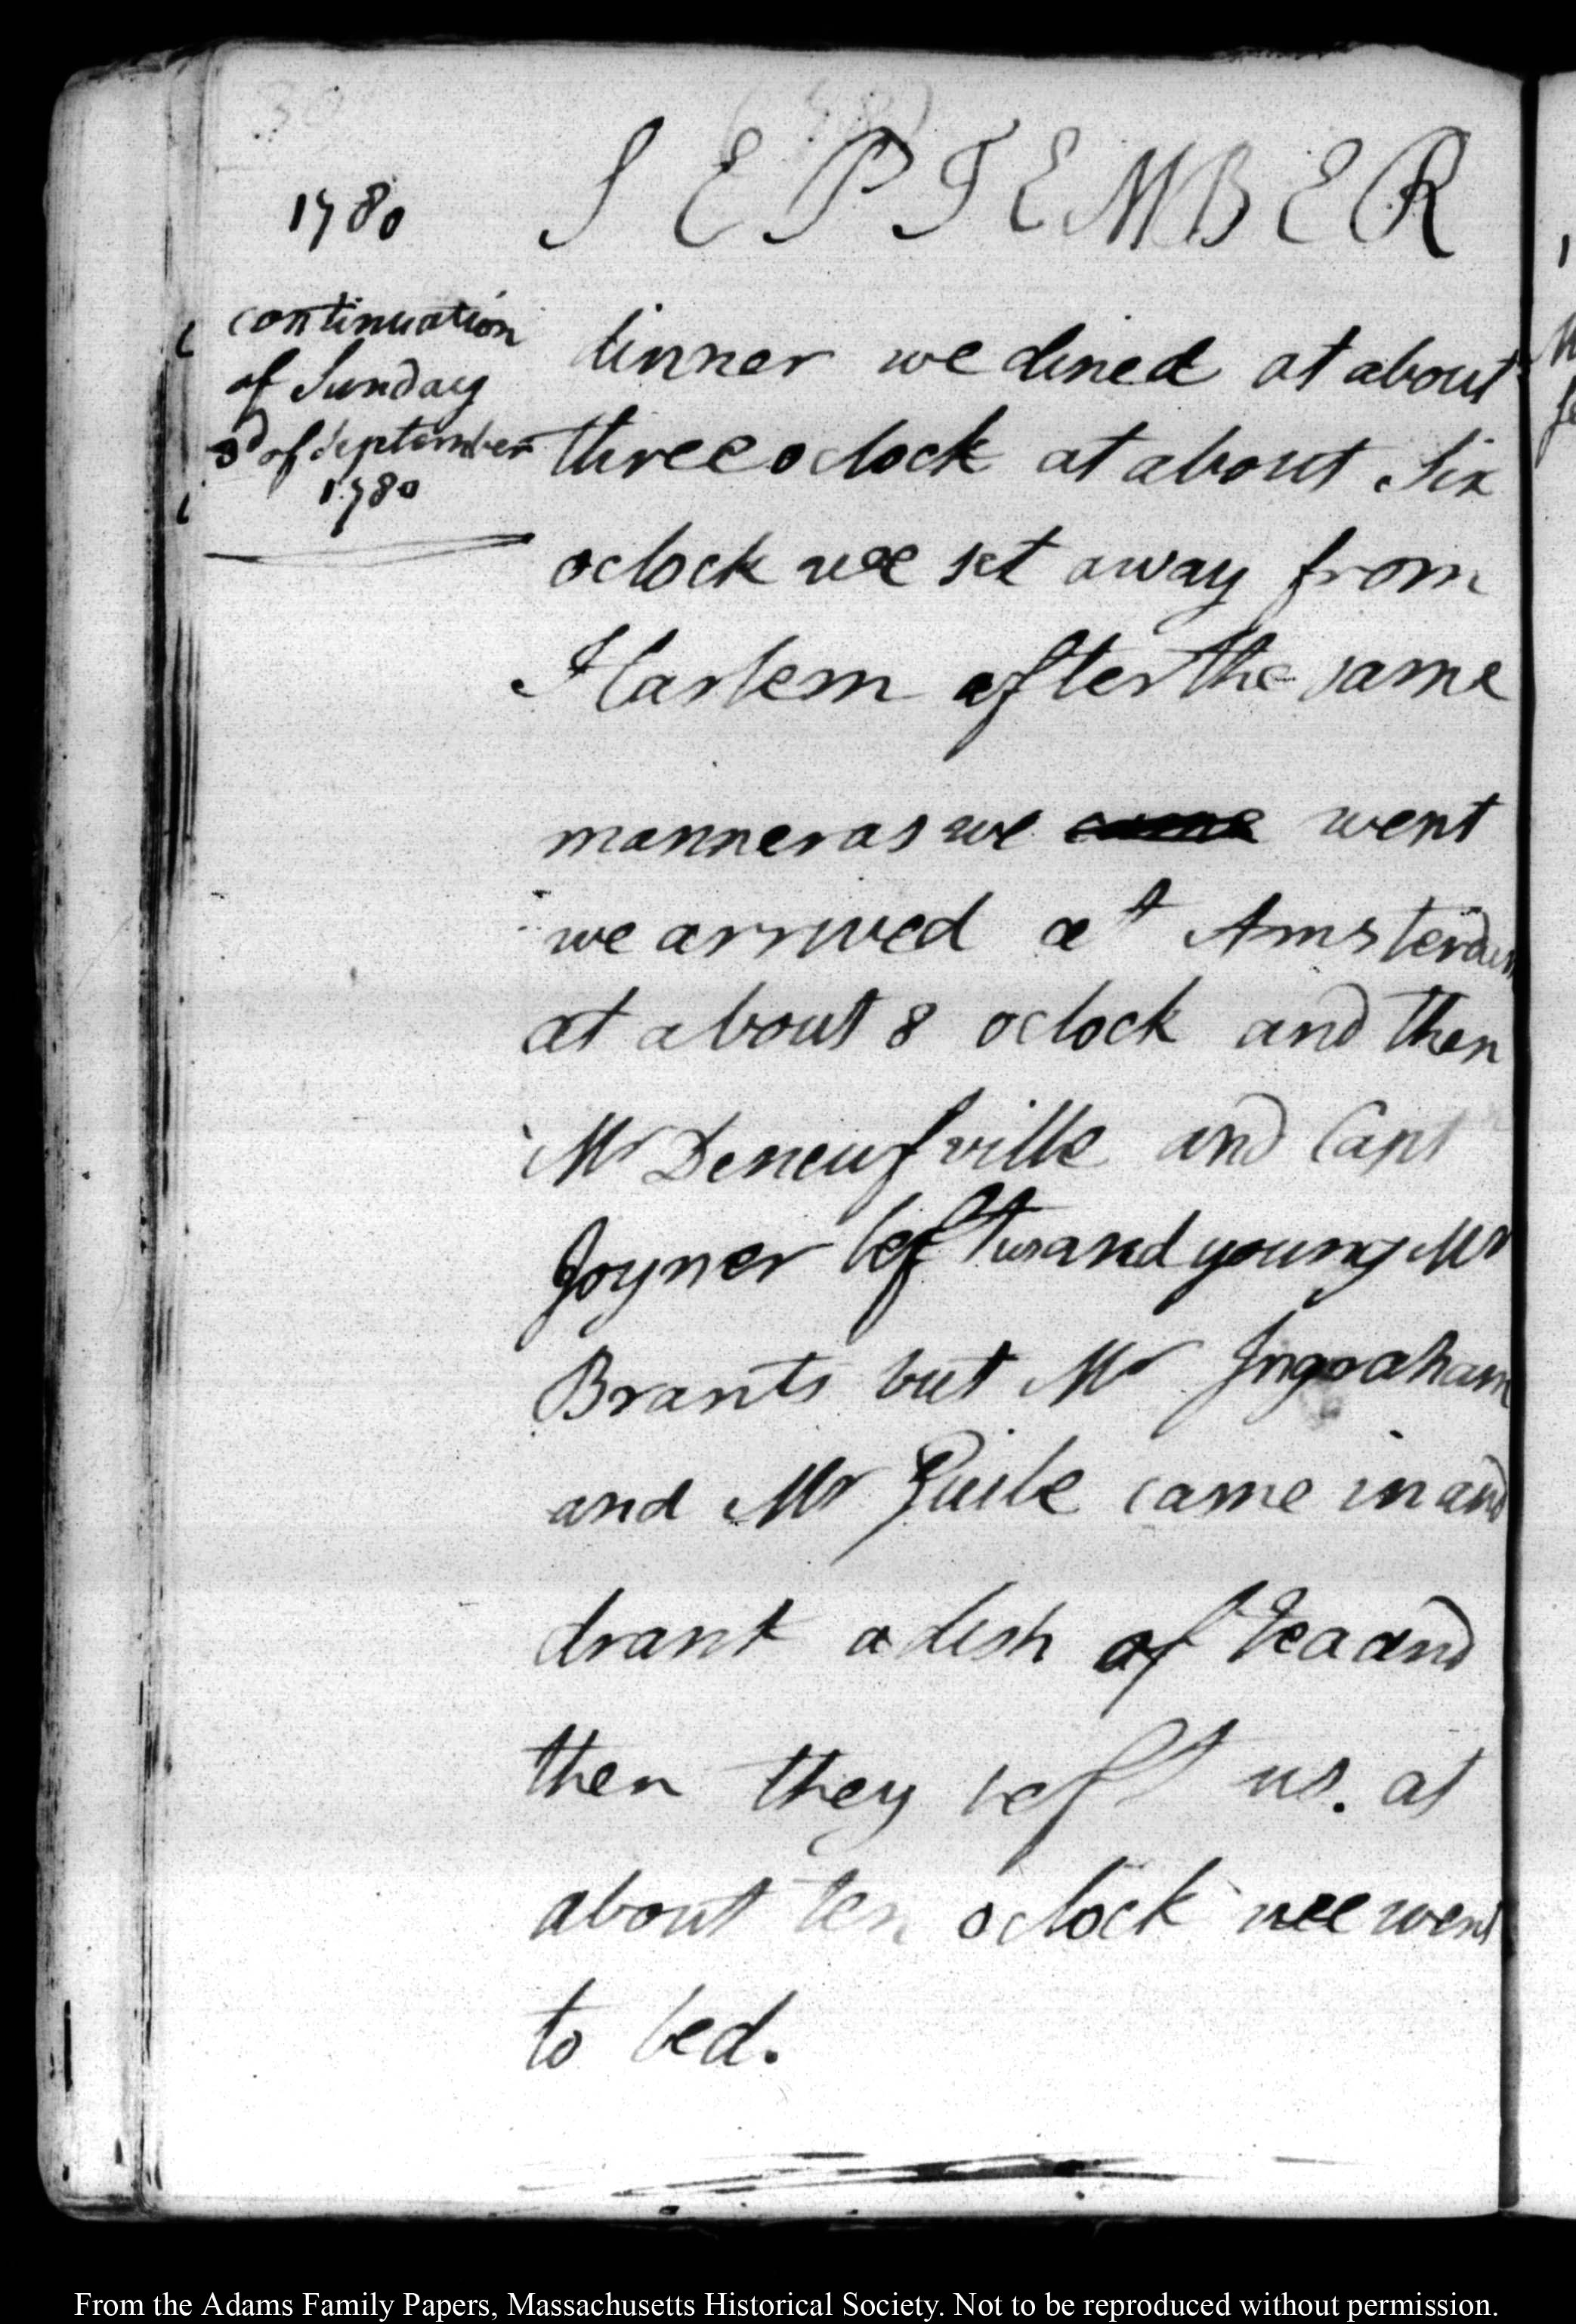 1780
SEPTEMBER
continuation
of Sunday
3d of September
1780
dinner we dined at about
three o clock at about Six
oclock we set away from
Harlem after the same
manner as we came went
we arrived at Amsterdam
at about 8 oclock and then
Mr Deneufville and Capt
Joyner left us and young Mr
Brants but Mr Ingraham
and Mr Guile came in and
drank a dish of tea and
then they left us. at
about ten oclock wee went
to bed.
From the Adams Family Papers, Massachusetts Historical Society. Not to be reproduced without permission.